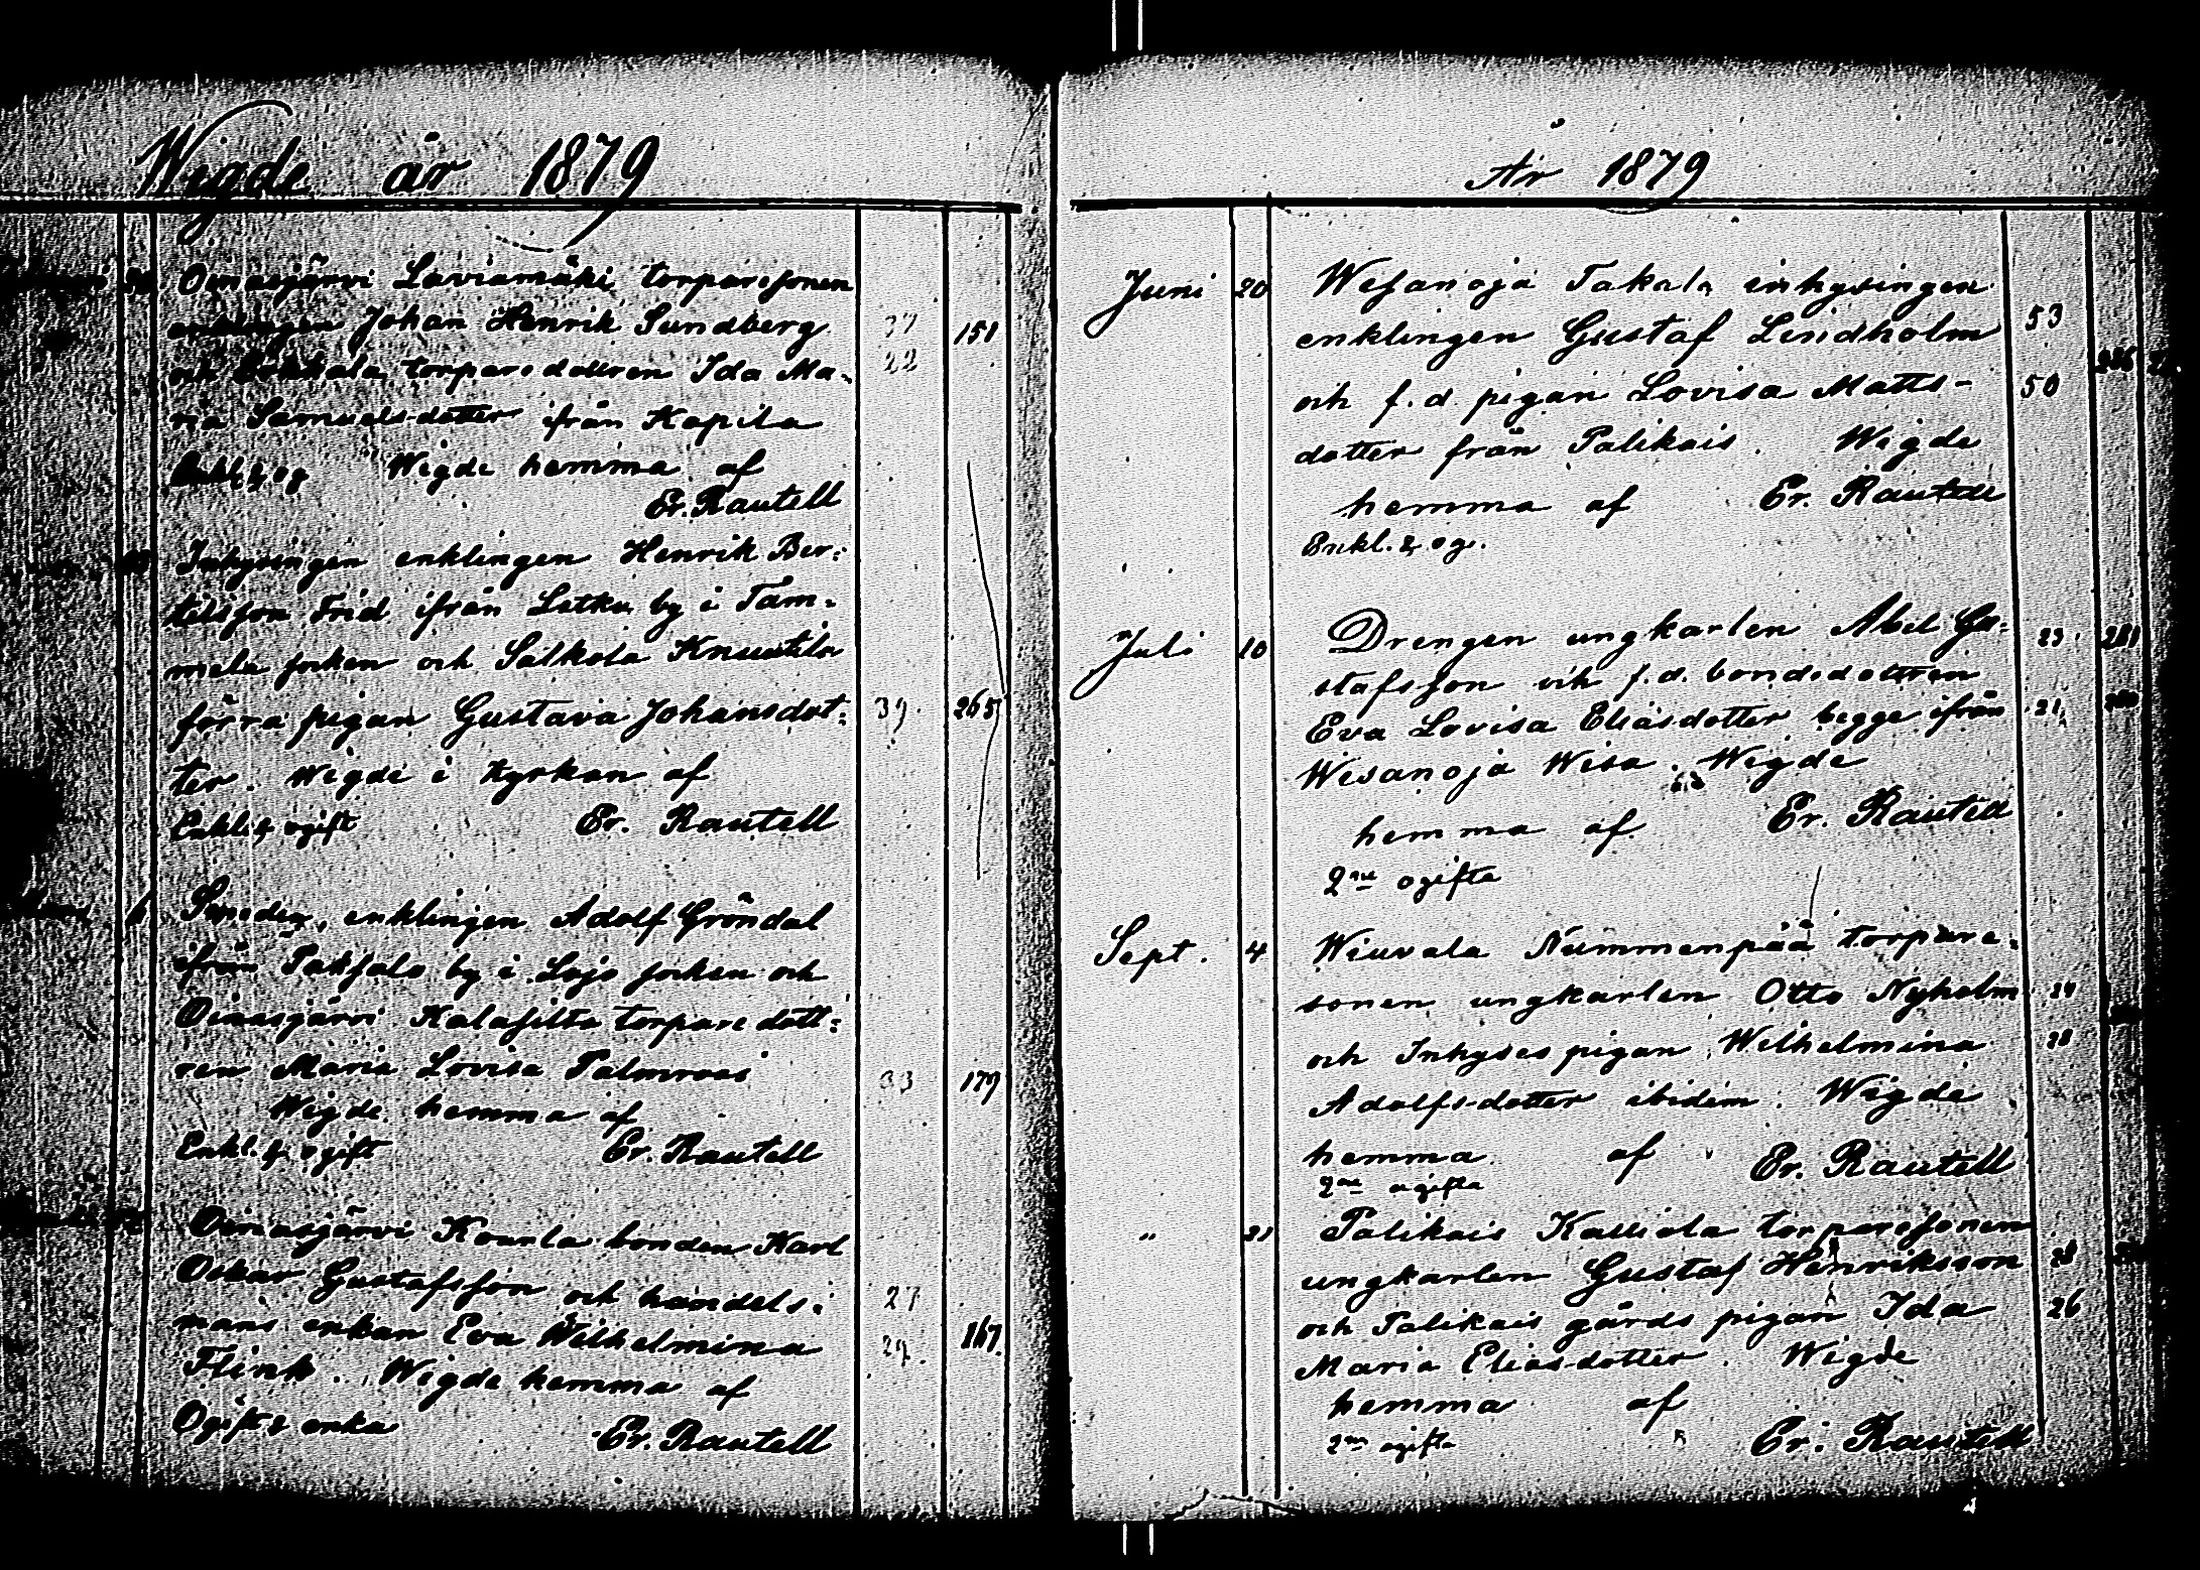 Wigde år 1879
Oinasjärvi Laviamäki torparesonen
enklingen Johan Henrik Sundberg 37 151
och torparedottren Ida Ma- 22
ria Samuelsdotter ifrån Kapila
Enkl. & og Wigde hemma af
Er. Rautell
Inhysingen enklingen Henrik Ber-
telsson Frid ifrån Letku by i Tam-
mela socken och Salkola Knuutila
förra pigan Gustava Johansdot- 39. 265
ter. Wigde i Kyrkan af
Enkl. & ogift Er. Rautell
Smeden, enklingen Adolf Gröndal
ifrån by i Lojo socken och
Oinasjärvi Kalasilta torparedott-
ren Maria Lovisa Palmroos 33 179
Wigde hemma af
Enkl. & ogift Er. Rautell
Oinasjärvi Kourla bonden Karl
Oskar Gustafsson och handels- 27
mans enkan Eva Wilhelmina 29. 167.
Flink. Wigde hemma af
Ogift & enka Er. Rautell
År 1879
Juni 20 Wesanoja Takala inhysingen
enklingen Gustaf Lindholm 53
och f.d. pigan Lovisa Matts- 50
dotter från Palikais. Wigde
hemma af Er. Rautell
Enkl. & og.
Juli 10 Drengen ungkarlen Abel Gu- 23. 281
stafsson och f.d. bondedottren
Eva Lovisa Eliasdotter begge ifrån 21
Wesanoja Wisa. Wigde
hemma af Er. Rautell
2ne ogifta
Sept. 4 Wiuvala Nummenpää torpare-
sonen ungkarlen Otto Nyholm 24
och Inhyses pigan Wilhelmina 28
Adolfsdotter ibidem. Wigde
hemma af Er. Rautell
2ne ogifta
" Palikais Kalliola torparesonen
ungkarlen Gustaf Henriksson 28
och Palikais gårds pigan Ida 26
Maria Eliasdotter. Wigde
hemma af
2ne ogifta Er. Rautell